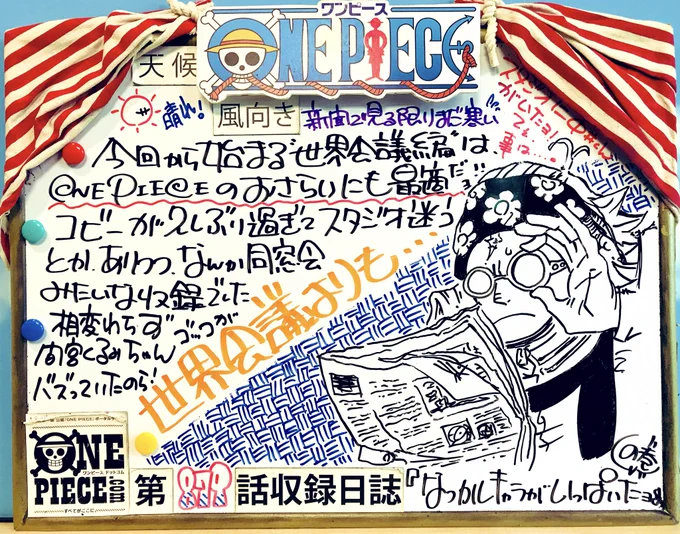 ワンピース
ONE PIECE
天候
晴れ!
風向き
新宿に見る限りまだ寒い
今回から始まる"世界会議編"は、
@NEPIE@Eのおさらいにも最適だヨ!!
コビーが久しぶり過ぎてスタジオ迷う
とか、ありつつ、なんか同窓会
みたいな収録でした
相変わらず
間宮くるみちゃん
バズっていたのら!
世界会議よりも…
ONE
PIECE
ワンピース ドットコム
すべてがここに
第878話収録日誌
の巻
『なつかしキャラがいっぱいだヨ